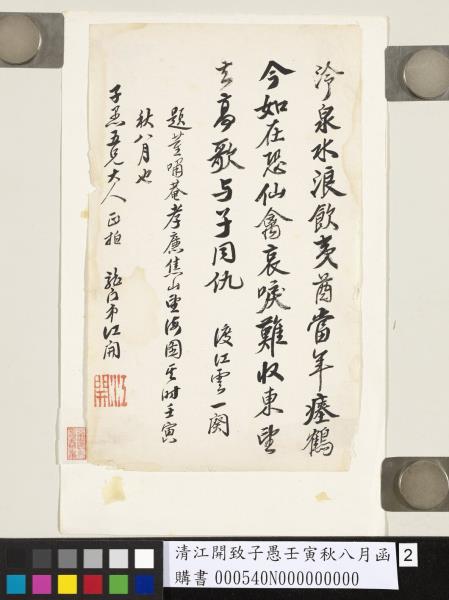 冷泉水浪飲夷酋當年瘞鶴
今如在恐仙禽哀唳難收東望
去高歌与子同仇 渡江雲一闋
題 庵孝廉焦山望海圖 時壬寅
秋八月也
子愚五兄大人正拍 弟江開
江開
清江開致子愚壬寅秋八月函
購書 000540N000000000
2